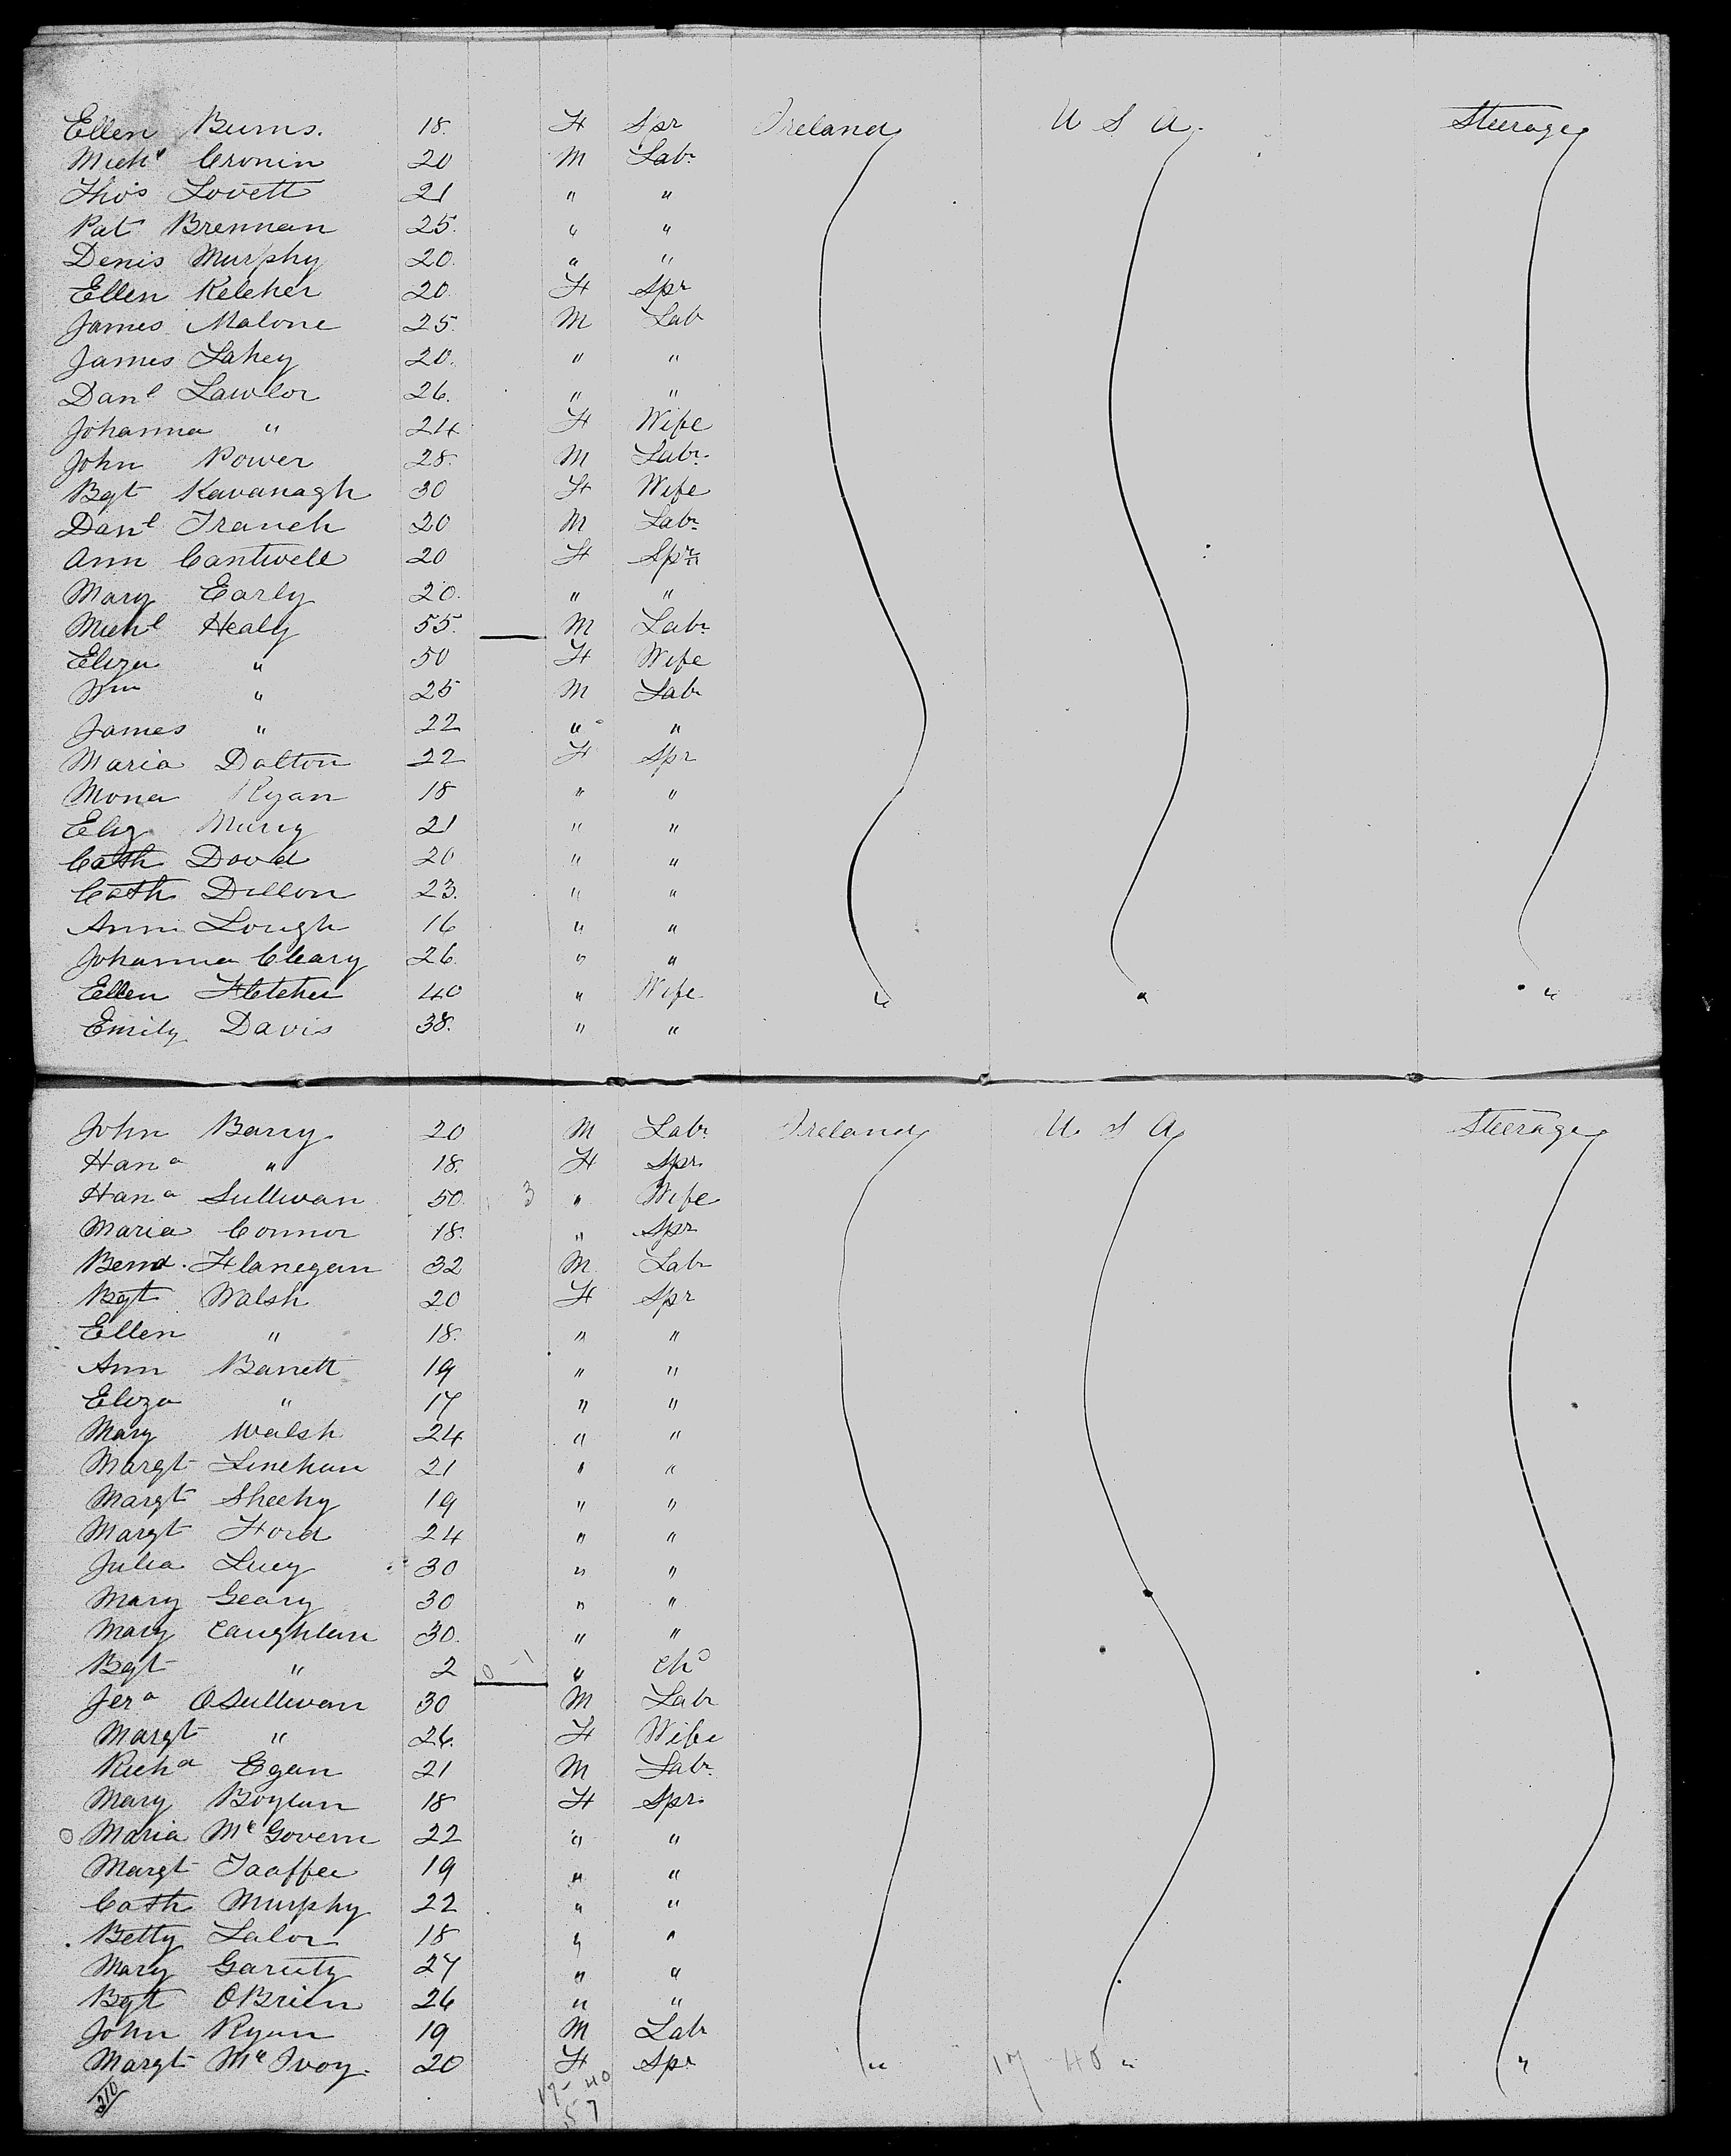 Ellen Burns. 18. F Spr Ireland U S A. Steerage
Michl Cronin 20 M Labr
Thos Lovett 21 " "
Pat Brennan 25. " "
Denis Murphy 20. " "
Ellen Keleher 20. F Spr
James Malone 25. M Lab
James Lahey 20. " "
Danl Lawlor 26. " "
Johanna " 24 F Wife
John Power 28. M Labr.
Bgt Kavanagh 30 F Wife
Danl Tranch 20 M Labr
Ann Cantwell 20 F Spr
Mary Early 20. " "
Michl Healy 55. M Labr
Eliza " 50 F Wife
Wm " 25 M Labr
James " 22 " "
Maria Dalton 22 F Spr
Mona Ryan 18 " "
Eliz Murry 21 " "
Cath Dowd 20 " "
Cath Dillon 23. " "
Ann Lough 16 " "
Johanna Cleary 26. " "
Ellen Fletcher 40 " Wife " " "
Emily Davis 38. " "
John Barry 20 M Labr Ireland U S A Steerage
Hana " 18. F Spr
Hana Sullivan 50. 3 " Wife
Maria Connor 18. " Spr
Bernd. Flanegan 32 M Labr
Bgt Walsh 20 F Spr
Ellen " 18. " "
Ann Barrett 19 " "
Eliza " 17 " "
Mary Walsh 24 " "
Margt Linehan 21 " "
Margt Sheehy 19 " "
Margt Ford 24 " "
Julia Lucy 30 " "
Mary Geary 30 " "
Mary Caughlan 30. " "
Bgt " 2 0 - 1 " Chd
Jera OSullivan 30 M Labr
Margt " 26. F Wife
Richd Egan 21 M Labr.
Mary Boylan 18 F Spr.
O Maria McGovern 22 " "
Margt Taaffee 19 " "
Cath Murphy 22 " "
Betty Lalor 18 " "
Mary Garrity 27 " "
Bgt OBrien 26 " "
John Ryan 19 M Labr
Margt McIvoy. 20 F Spr " 17 40 " "
210 17 - 40
57